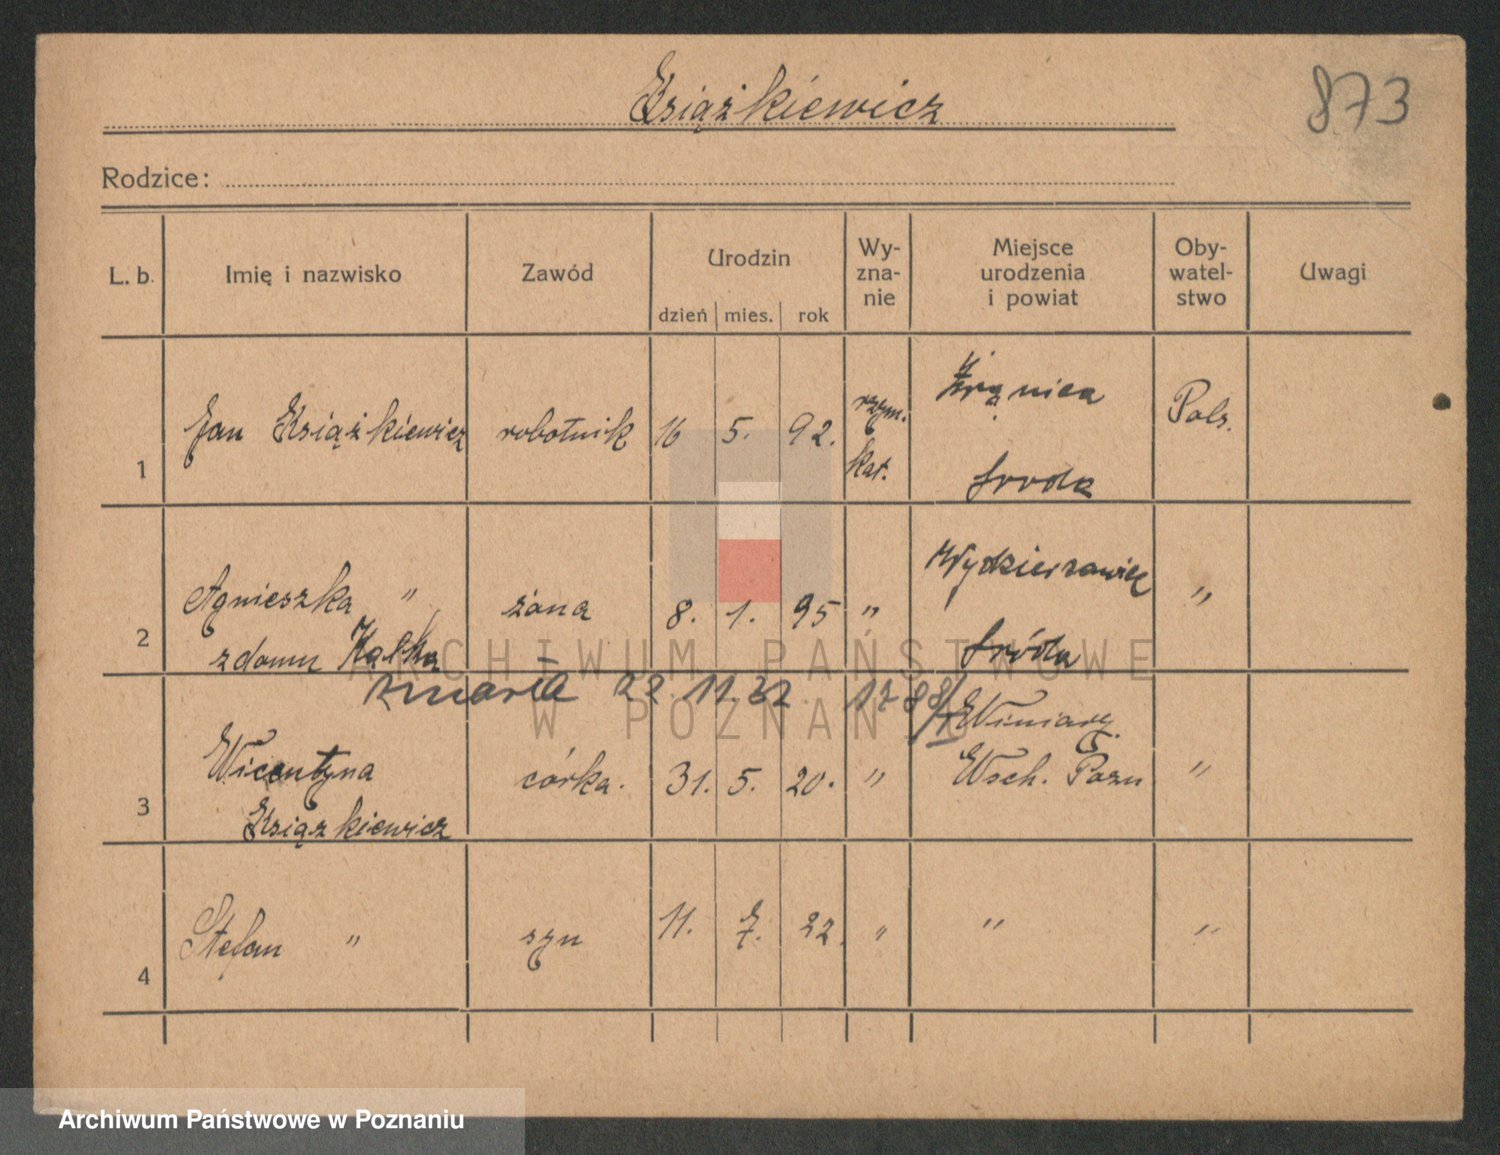 Książkiewicz
873
Rodzice:
L. b. Imię i nazwisko Zawód Urodzin dzień mies. rok Wy-zna-nie Miejsce urodzenia i powiat Oby-watel-stwo Uwagi
1 Jan Książkiewicz robotnik 16 5. 92. rzym. kat. Środa Pols.
2 Agnieszka " żona 8. 1. 95 " "
zdomu Kątka Środa
zmarła 22 11. 32 1788/
Winiary
3 Wicentyna córka. 31. 5. 20. " Wsch. Pozn "
Książkiewicz
4 Stefan " syn 11. 7. 22. " " "
ARCHIWUM PAŃSTWOWE
W POZNANIU
Archiwum Państwowe w Poznaniu